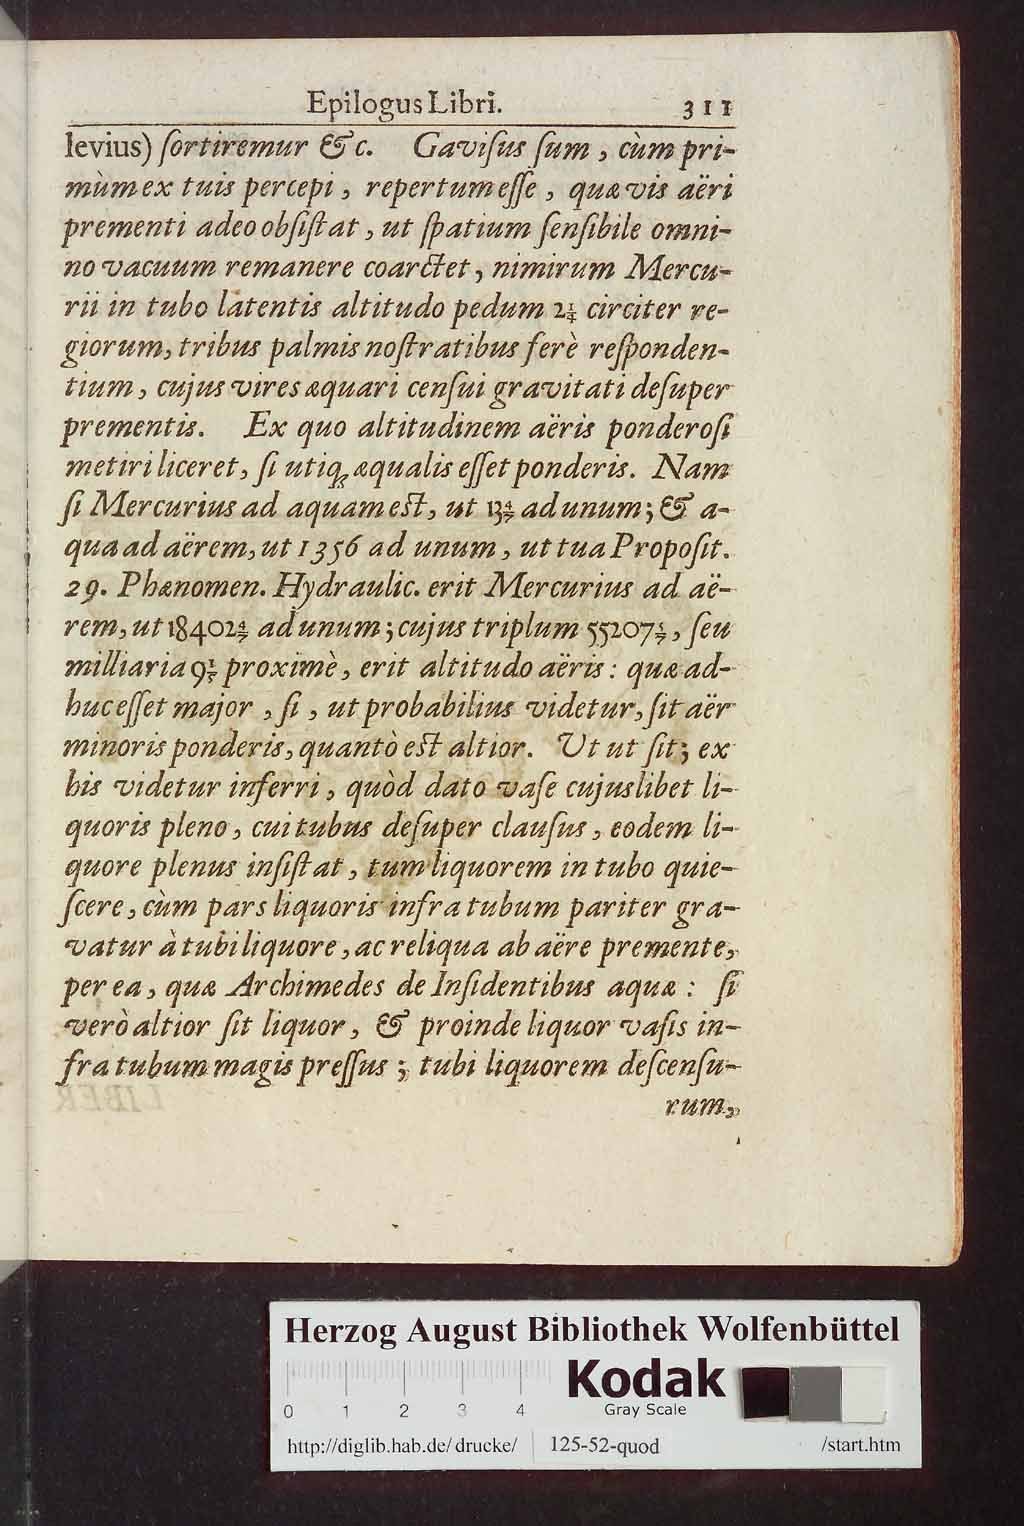 Epilogus Libri. 311
levius) ſortiremur & c. Gaviſus ſum, cùm pri-
mùm ex tuis percepi, repertum eſſe, quæ vis aëri
prementi adeo obſiſtat, ut ſpatium ſenſibile omni-
no vacuum remanere coarctet, nimirum Mercu-
rii in tubo latentis altitudo pedum 2¼ circiter re-
giorum, tribus palmis noſtratibus ferè reſponden-
tium, cujus vires æquari cenſui gravitati deſuper
prementis. Ex quo altitudinem aëris ponderoſi
metiri liceret, ſi utiq; æqualis eſſet ponderis. Nam
ſi Mercurius ad aquam eſt, ut 13 4/7 ad unum; & a-
qua ad aërem, ut 1356 ad unum, ut tua Propoſit.
29. Phænomen. Hydraulic. erit Mercurius ad aë-
rem, ut 18402 4/7 ad unum; cujus triplum 55207 5/7, ſeu
milliaria 9 1/5 proximè, erit altitudo aëris: quæ ad-
huc eſſet major, ſi, ut probabilius videtur, ſit aër
minoris ponderis, quantò eſt altior. Ut ut ſit; ex
his videtur inferri, quòd dato vaſe cujuslibet li-
quoris pleno, cui tubus deſuper clauſus, eodem li-
quore plenus inſiſtat, tum liquorem in tubo quie-
ſcere, cùm pars liquoris infra tubum pariter gra-
vatur à tubi liquore, ac reliqua ab aëre premente,
per ea, quæ Archimedes de Inſidentibus aquæ: ſi
verò altior ſit liquor, & proinde liquor vaſis in-
fra tubum magis preſſus; tubi liquorem deſcenſu-
rum,
Herzog August Bibliothek Wolfenbüttel
Kodak
Gray Scale
0 1 2 3 4
http://diglib.hab.de/drucke/ 125-52-quod /start.htm